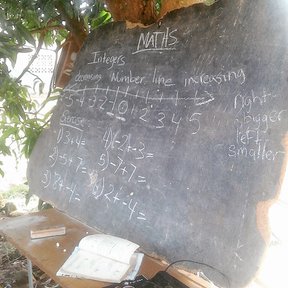 MATHS
Integers
decreasing Number line increasing
-5 -4 -3 -2 -1 0 1 2 3 4 5
Right-
bigger
left-
smaller
Exercise
1) 3+4=
2) -5+7=
3) 8+-4=
4) -2+-3=
5) -7+7=
6) 2+-4=